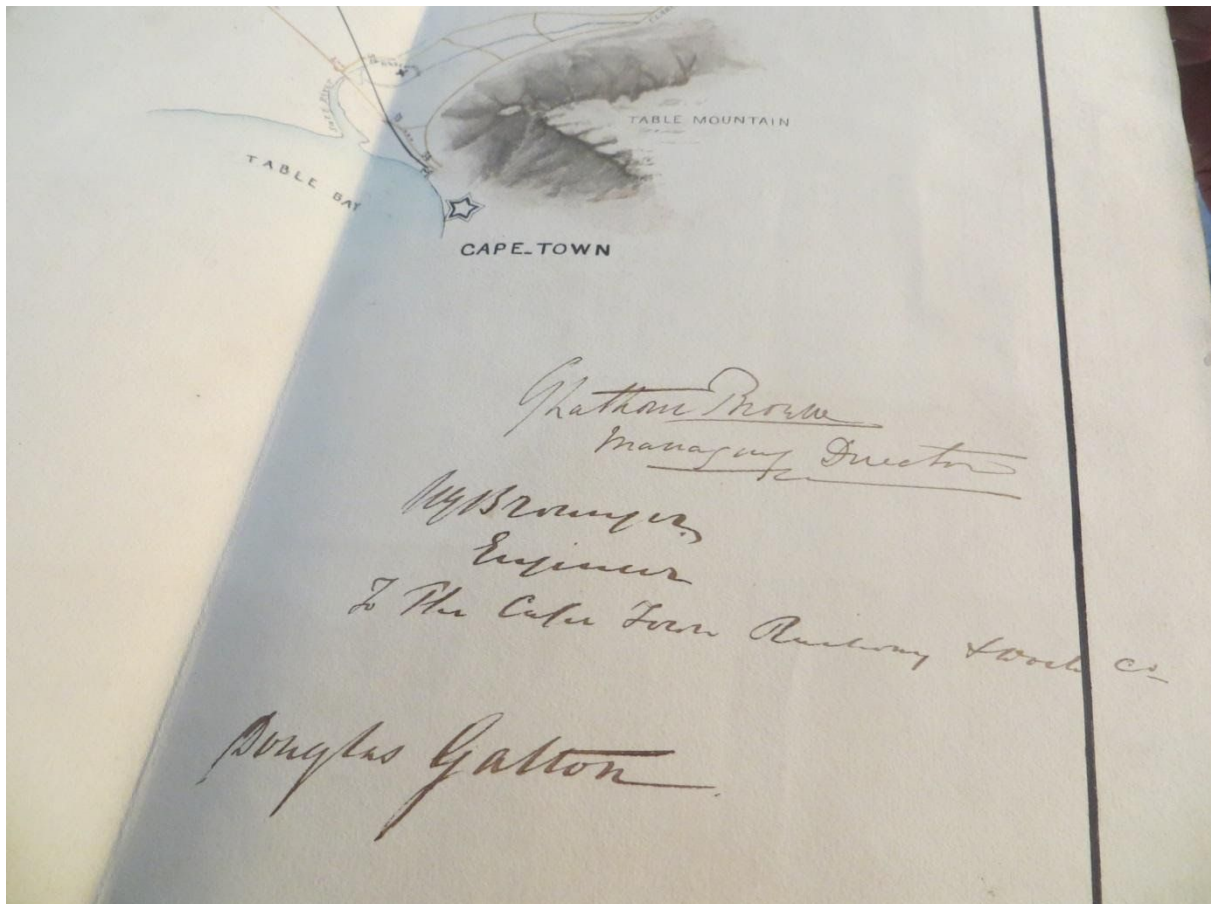 TABLE MOUNTAIN
TABLE BAY
CAPE-TOWN
Browne
Managing Director
Wg Brounger
Engineer
To The Cape Town Railway & Dock Co
Douglas Galton